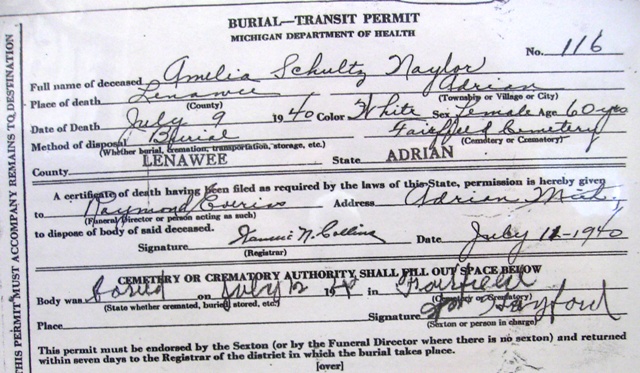 BURIAL—TRANSIT PERMIT
MICHIGAN DEPARTMENT OF HEALTH
No. 116
Full name of deceased Amelia Schultz Naylor
Place of death Lenawee Adrian
(County) (Township or Village or City)
Date of Death July 9 1940 Color White Sex Female Age 60 yrs
Method of disposal Burial Fairfield Cemetery
(Whether burial, cremation, transportation, storage, etc.) (Cemetery or Crematory)
County LENAWEE State ADRIAN
A certificate of death having been filed as required by the laws of this State, permission is hereby given
to Raymond Address Adrian Mich.
(Funeral Director or person acting as such)
to dispose of body of said deceased.
Signature N. Collins Date July 11-1940
(Registrar)
CEMETERY OR CREMATORY AUTHORITY SHALL FILL OUT SPACE BELOW
Body was buried on July 12 19 in Fairfield
(State whether cremated, buried, stored, etc.) (Cemetery or Crematory)
Place Signature Hayford
(Sexton or person in charge)
This permit must be endorsed by the Sexton (or by the Funeral Director where there is no sexton) and returned
within seven days to the Registrar of the district in which the burial takes place.
[over]
THIS PERMIT MUST ACCOMPANY REMAINS TO DESTINATION